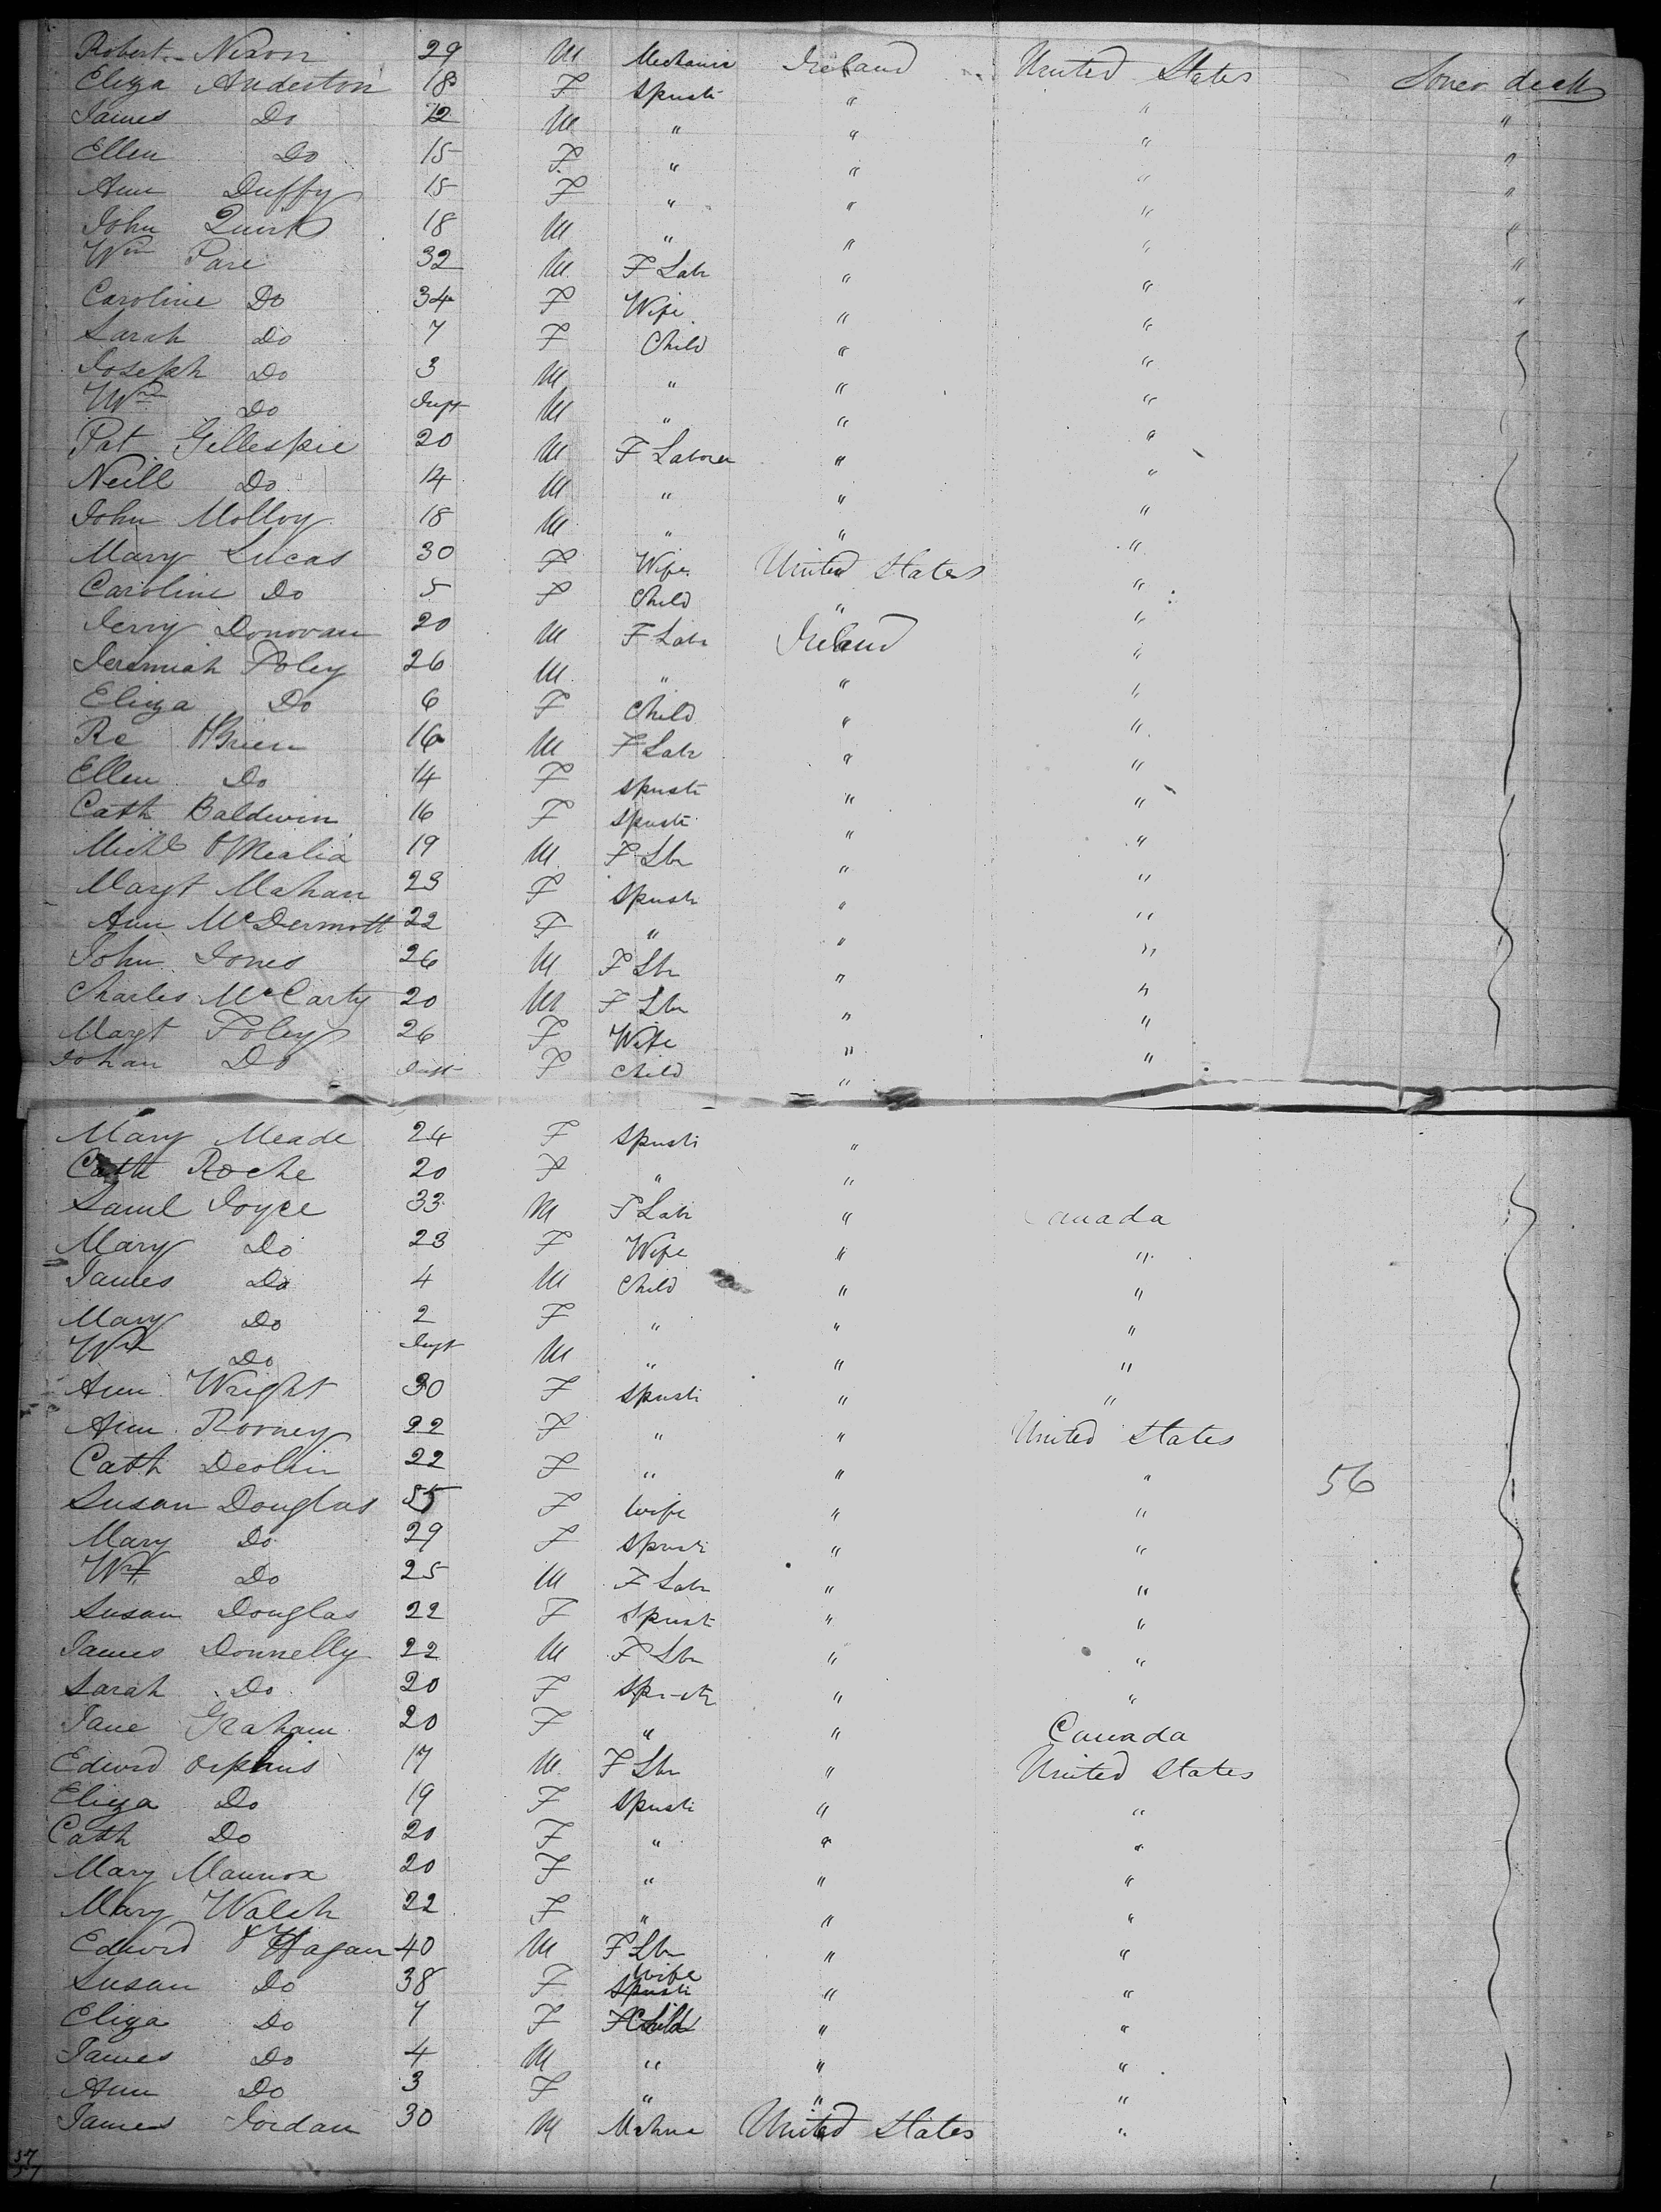 Robert Nixon 29 M Mechanic Ireland United States Lower deck
Eliza Anderson 18 F Spinst " " "
James Do 12 M " " " "
Ellen Do 15 F " " " "
Ann Duffy 15 F " " " "
John Quirk 18 M " " " "
Wm Pare 32 M F Labr " " "
Caroline Do 34 F Wife " "
Sarah Do 7 F Child " "
Joseph Do 3 M " " "
Wm Do Inft M " " "
Pat Gillespie 20 M F Laborer " "
Neill Do 14 M " " "
John Molloy 18 M " " "
Mary Lucas 30 F Wife United States "
Caroline Do 5 F Child " "
Jerry Donovan 20 M F Labr Ireland "
Jeremiah Foley 26 M " " "
Eliza Do 6 F Child " "
Re O'Brien 16 M F Labr " "
Ellen Do 14 F Spinstr " "
Cath Baldwin 16 F Spinstr " "
Michl O'Mealia 19 M F Lbr " "
Margt Mahan 23 F Spinstr " "
Ann McDermott 22 F " " "
John Jones 26 M F Lbr " "
Charles McCarty 20 M F Lbr " "
Margt Foley 26 F Wife " "
Johan Do Inft F Child "
Mary Meade 24 F Spinstr "
Cath Roche 20 F " "
Saml Joyce 33 M F Labr " Canada
Mary Do 23 F Wife " "
James Do 4 M Child " "
Mary Do 2 F " " "
Wm Do Inft M " " "
Ann Wright 30 F Spinstr " "
Ann Rooney 22 F " " United States
Cath Devlin 22 F " " " 56
Susan Douglas 55 F Wife " "
Mary Do 29 F Spinstr " "
Wm Do 25 M F Labr " "
Susan Douglas 22 F Spinst " "
James Donnelly 22 M F Lbr " "
Sarah Do 20 F Spinstr " "
Jane Graham 20 F " " Canada
Edwd Orphius 17 M F Lbr " United States
Eliza Do 19 F Spinstr " "
Cath Do 20 F " " "
Mary Mannox 20 F " " "
Mary Walsh 22 F " " "
Edwd O'Hagan 40 M F Lbr " "
Susan Do 38 F Spinstr Wife " "
Eliza Do 7 F Child " "
James Do 4 M " " "
Ann Do 3 F " " "
James Jordan 30 M United States "
37